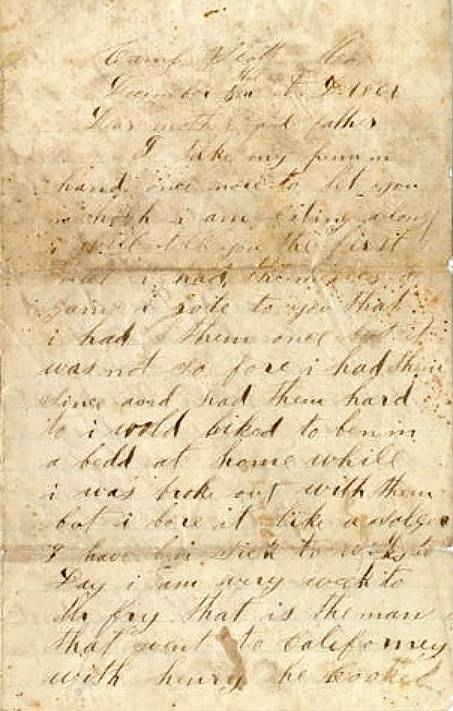 Camp Scott Mo
December the A D. 1861
Dear mother and father
I take my pen in
hand once more to let you
no how i am giting along
i will tell you the first
that i had the a
gain i rote to you that
i had them once but it
was not so fore i had them
since and had them hard
to i wold liked to ben in
a bedd at home while
i was broke out with them
but i bore it like a solger
I have bin sick to weeks to
Day i am very weak to
Mr fry that is the man
that went to Californey
with henry he